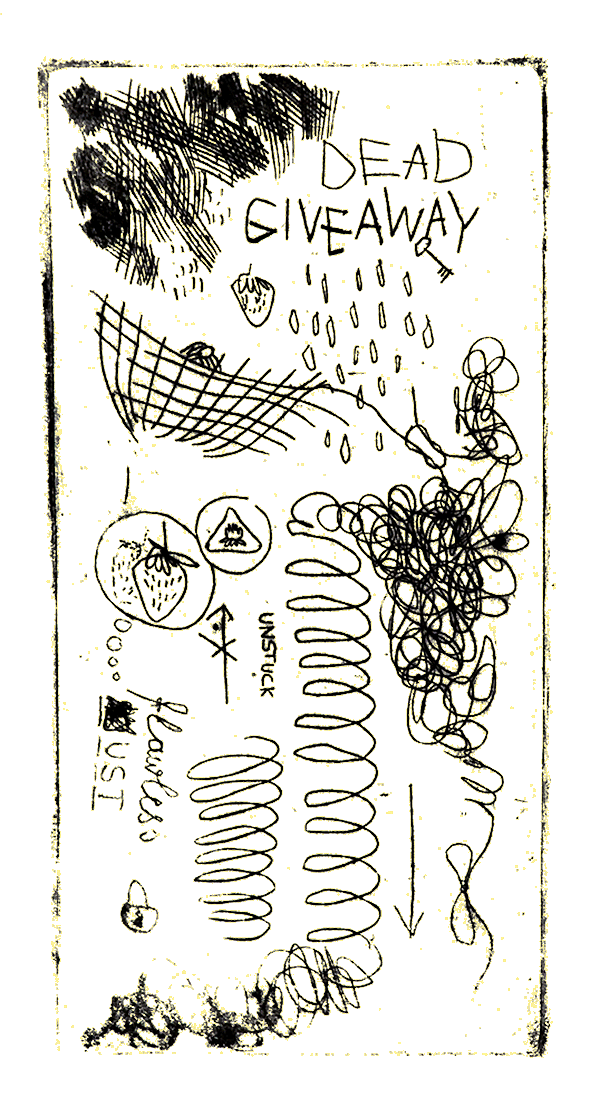 DEAD
GIVEAWAY
UNSTUCK
flawless
UST